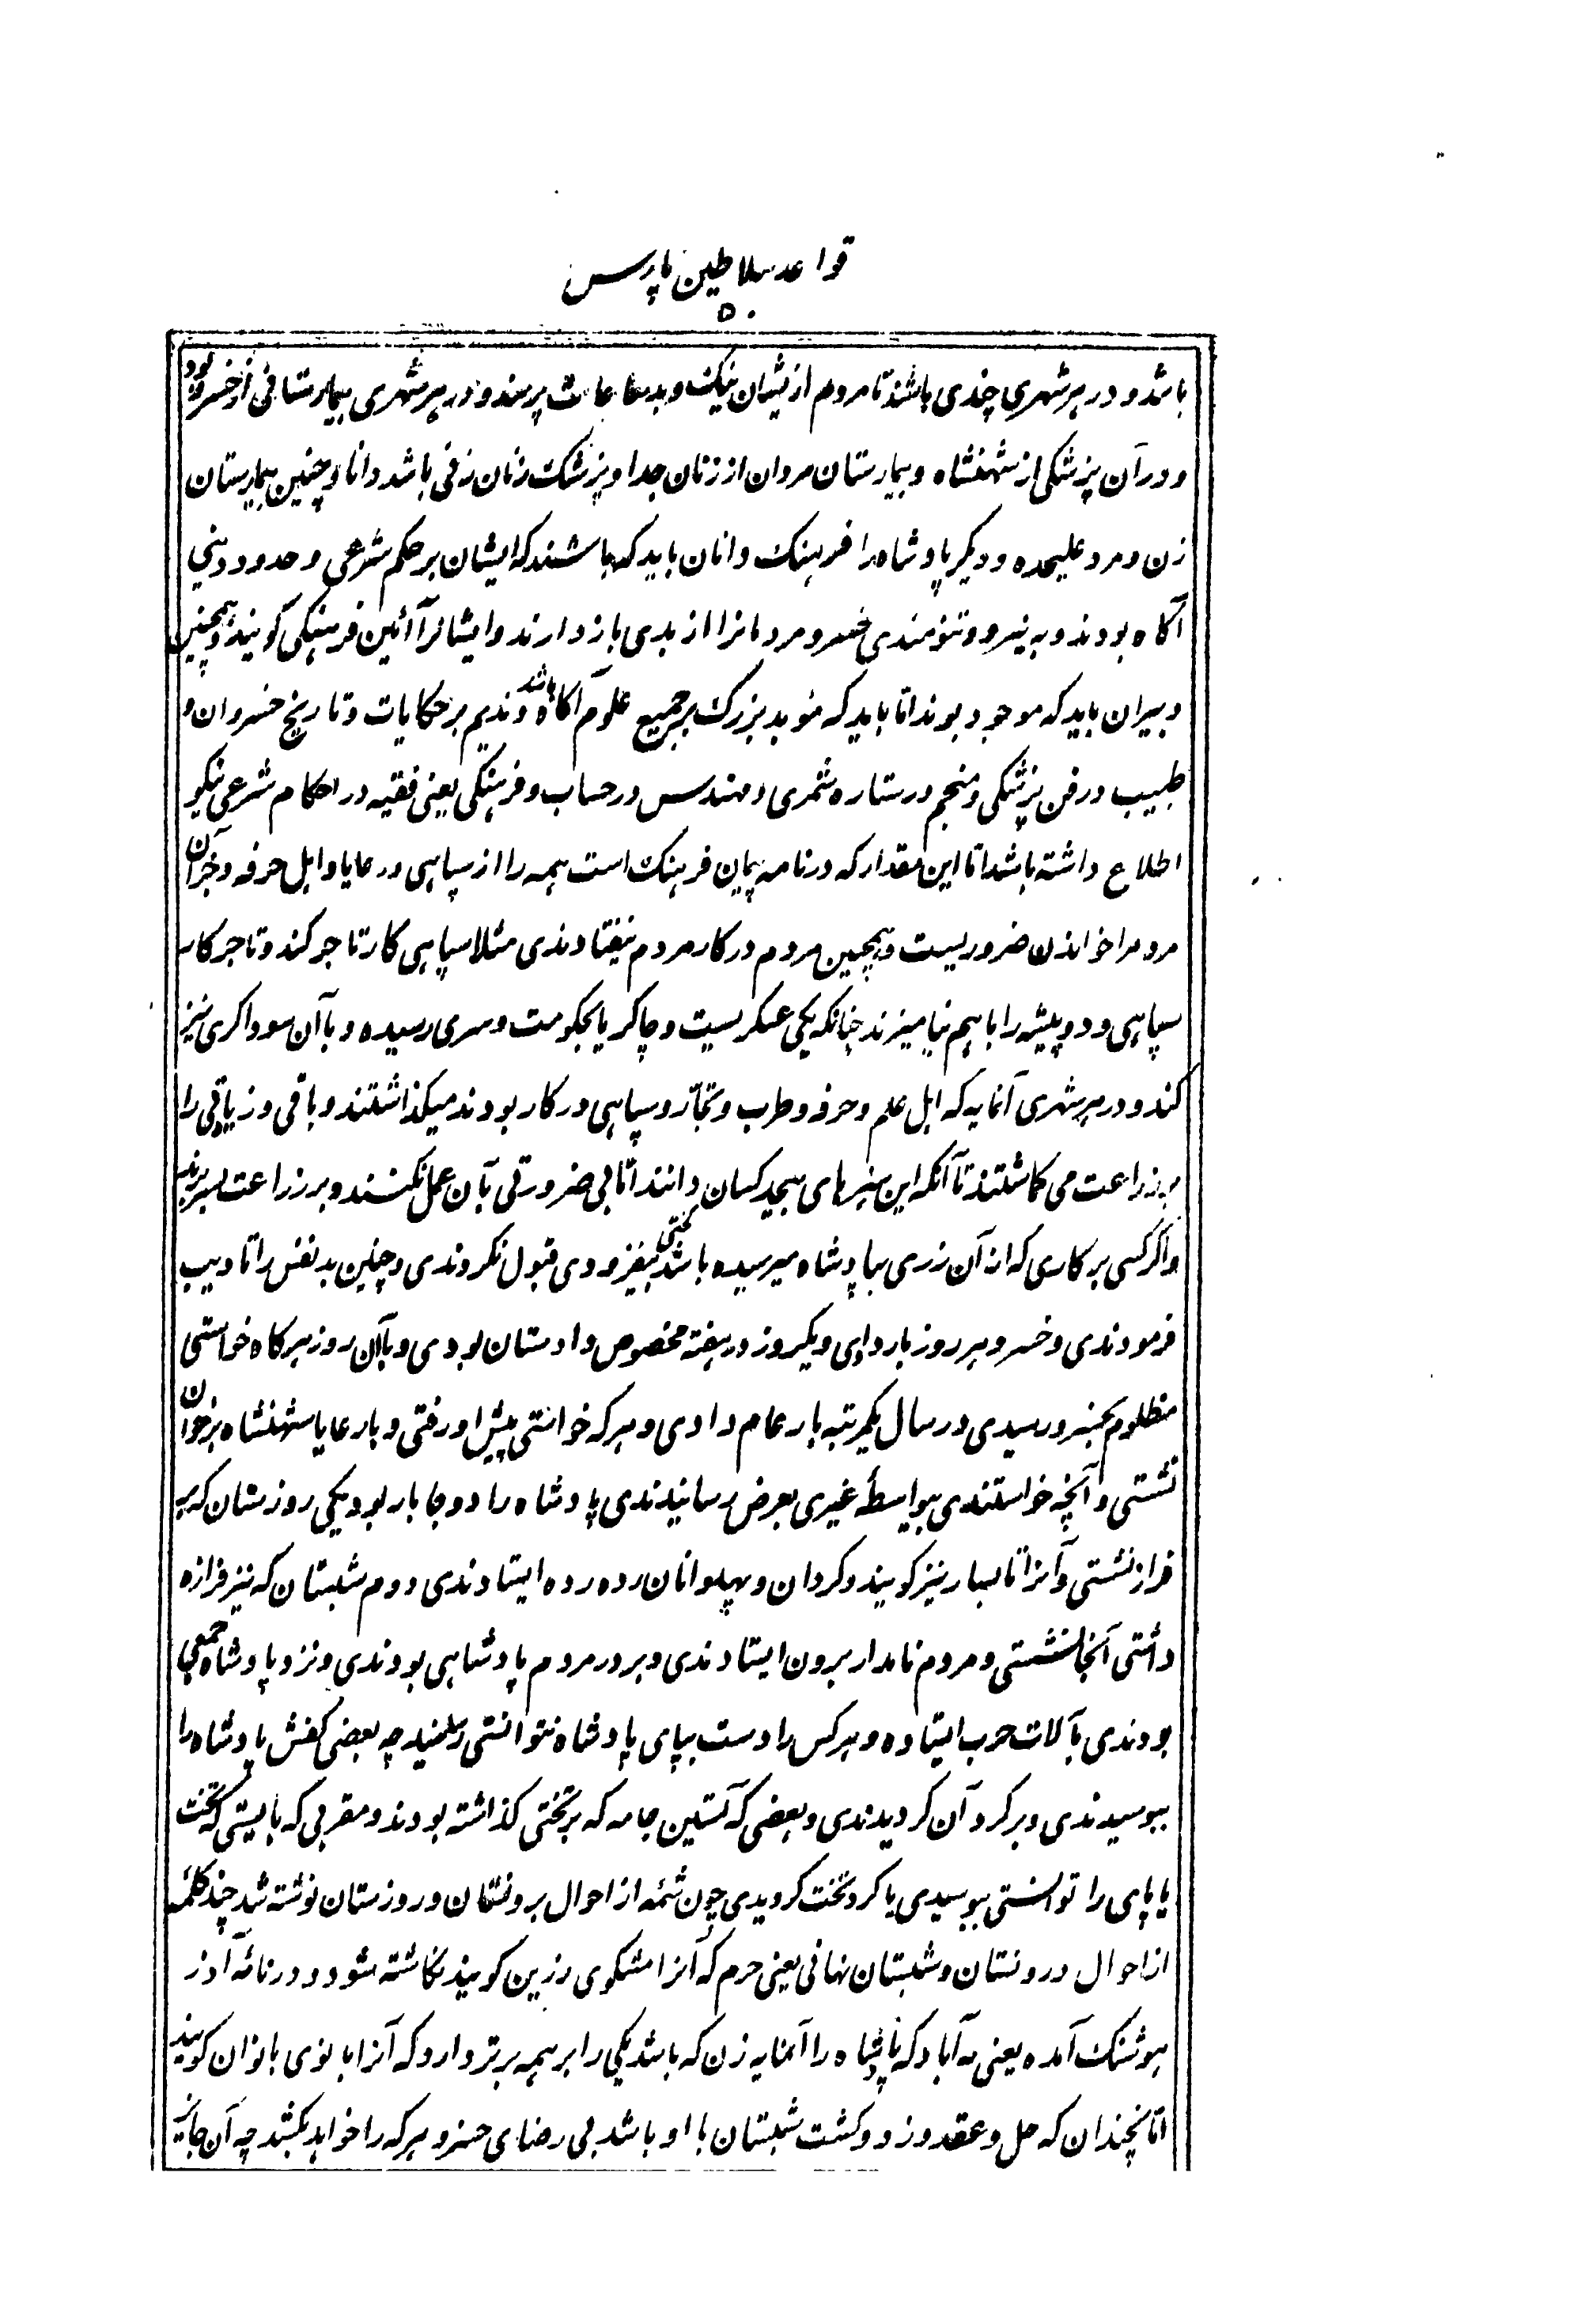 قواعد سلاطین پارس
۵۰
باشد و در هر شهری چندی باشند تا مردم از یشان نیک و بد ساعات پرسند و در هر شهری بیمارستانی از خسرو بود
و در آن پزشکی از شهنشاه و بیمارستان مردان از زنان جدا و پزشک زنان زنی باشد دانا و چنین بیمارستان
زن و مرد علیحده و دیگر پادشاه را فرهنک دانان باید که باشند که ایشان بر حکم شرعی و حدود دینی
آکاه بودند و به نیرو و تنومندی خسرو مردمانرا از بدی باز دارند و ایشانرا آئین فرهنکی کویند و همچنین
دبیران باید که موجود بوند اما باید که موبد بزرک بر جمیع علوم آکاه باشد و ندیم بر حکایات و تاریخ خسروان و
طبیب در فن پزشکی و منجم در ستاره شمری و مهندس در حساب و فرهنکی یعنی فقیه در احکام شرعی نیکو
اطلاع داشته باشد اما این مقدار که در نامه پیمان فرهنک است همه را از سپاهی و رعایا و اهل حرفه و جز آن
مردمرا خواندن ضروریست و همچنین مردم در کار مردم نیفتادندی مثلا سپاهی کار تاجر کند و تاجر کار
سپاهی و دو پیشه را با هم نیامیزند چنانکه یکی عسکریست و چاکر یا بحکومت و سری رسیده و با آن سوداکری نیز
کند و در هر شهری آنمایه که اهل علم و حرفه و طرب و تجّار و سپاهی در کار بودند میکذاشتند و باقی و زیاقی را
بزراعت می کماشتند تا آنکه این هنرهای بیحد کسان دانند اما بی ضرورتی بآن عمل نکنند و بر زراعت بسر برند
و اکر کسی بر کاری که از آن زری بپادشاه میرسیده باشد بیفزودی قبول نکردندی و چنین بدنفس را تادیب
فرمودندی و خسرو هر روز بار دادی و یکروز در هفته مخصوص دادستان بودی و بآن روز هرکاه خواستی
مظلوم بخسرو رسیدی در سال یکمرتبه بار عام دادی و هر که خواستی پیش او رفتی و با رعایا شهنشاه بر خوان
نشستی و آنچه خواستندی بیواسطۀ غیری بعرض رسانیدندی پادشاه را دو جا بار بود یکی روزستان که بر
فراز نشستی و آنرا تابسار نیز کویند و کردان و پهلوانان رده رده ایستادندی دوم شبستان که نیز فرازه
داشتی آنجا نشستی و مردم نامدار برون ایستادندی و بر در مردم پادشاهی بودندی و نزد پادشاه جمعی
بودندی بآلات حرب ایستاده و هر کس را دست بپای پادشاه نتوانستی رسانید چه بعضی کفش پادشاه را
ببوسیدندی و بر کرد آن کردیدندی و بعضی که آستین جامه که بر تختی کذاشته بودند و مقربی که بایستی که تخت
یا پای را توانستی ببوسیدی یا کرد تخت کردیدی چون شمّه از احوال برونستان و روزستان نوشته شد چند کلمه
از احوال درونستان و شبستان نهانی یعنی حرم که آنرا مشکوی زرین کویند نکاشته شود و در نامۀ آذر
هوشنک آمده یعنی مه آباد که پادشاه را آنمایه زن که باشد یکی را بر همه برتر دارد که آنرا بانوی بانوان کویند
اما نچندان که حل و عقد و زد و کشت شبستان با او باشد بی رضای خسرو هر که را خواهد بکشد چه آن جایز